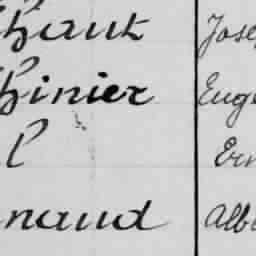 haut Jose
hinier Eug
l Ern
naud Alb